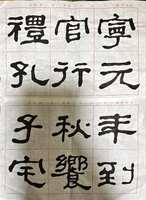 寧元年到
官行秋饗
禮孔子宅